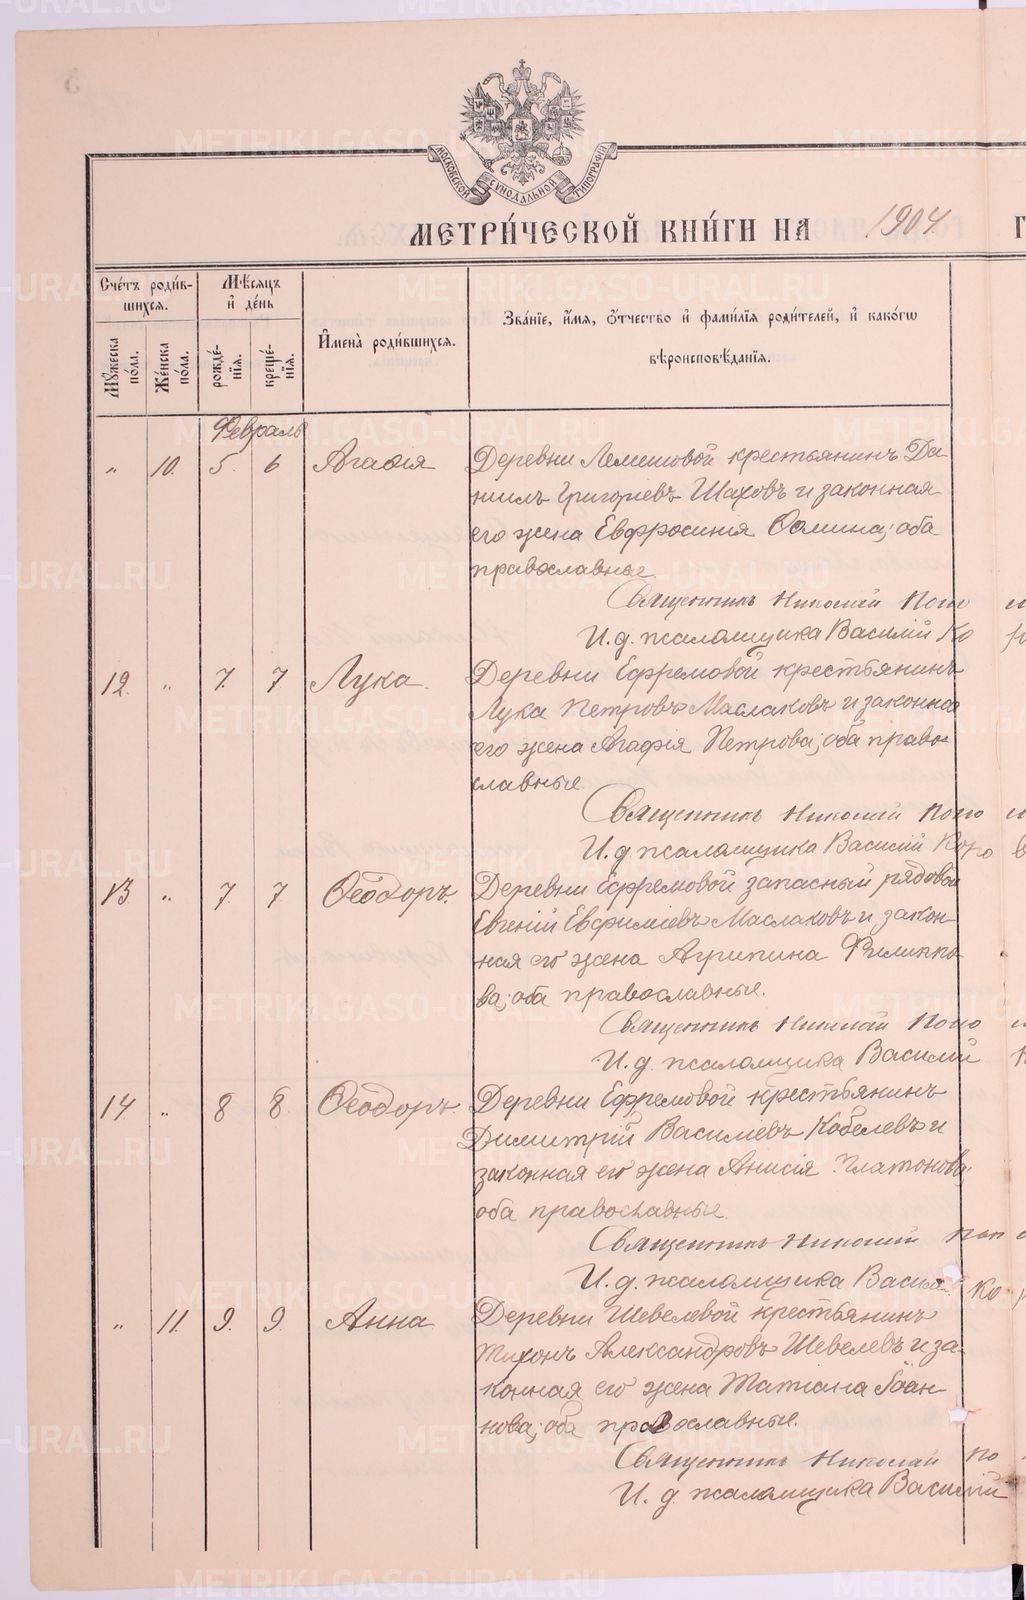 МОСКОВСКОЙ СУНОДАЛЬНОЙ ТИПОГРАФІИ
МЕТРИ́ЧЕСКОЙ КНИ́ГИ НА 1904 Г
Сче́тъ роди́в-
шихся.
Мѣ́сяцъ
и҆ де́нь
И҆мена̀ роди́вшихся.
Зва́нїе, и҆́мя, ѻ҆́тчество и҆ фами́лїя роди́телей, и҆ како́гѡ
вѣроисповѣ́данїя.
Мꙋ́жеска по́ла.
Же́нска по́ла.
рожде́-
нїя.
креще́-
нїя.
Февраль
" 10. 5. 6 Агафія Деревни Лемешовой крестьянинъ Да-
ніилъ Григоріевъ Шаховъ и законная
его жена Евфросинія Ѳомина; оба
православные.
Священникъ Николай Попо
И. д. псаломщика Василій Ко
12. " 7. 7 Лука. Деревни Ефремовой крестьянинъ
Лука Петровъ Маслаковъ и законная
его жена Агафія Петрова; оба право-
славные.
Священникъ Николай Попо
И. д. псаломщика Василій Коро
13. " 7. 7 Ѳеодоръ. Деревни Ефремовой запасный рядовой
Евгеній Евфиміевъ Маслаковъ и закон-
ная его жена Агрипина Филиппо-
ва; оба православные.
Священникъ Николай Попо
И. д. псаломщика Василій
14. " 8 8. Ѳеодоръ Деревни Ефремовой крестьянинъ
Димитрій Василіевъ Кобелевъ и
законная его жена Анисія Платонова;
оба православные.
Священникъ Николай Поп
И. д. псаломщика Васил Ко
" 11. 9. 9. Анна Деревни Шевелевой крестьянинъ
Тихонъ Александровъ Шевелевъ и за-
конная его жена Татіана Іоан-
нова; оба православные.
Священникъ Николай По
И. д. псаломщика Василій
METRIKI.GASO-URAL.RU